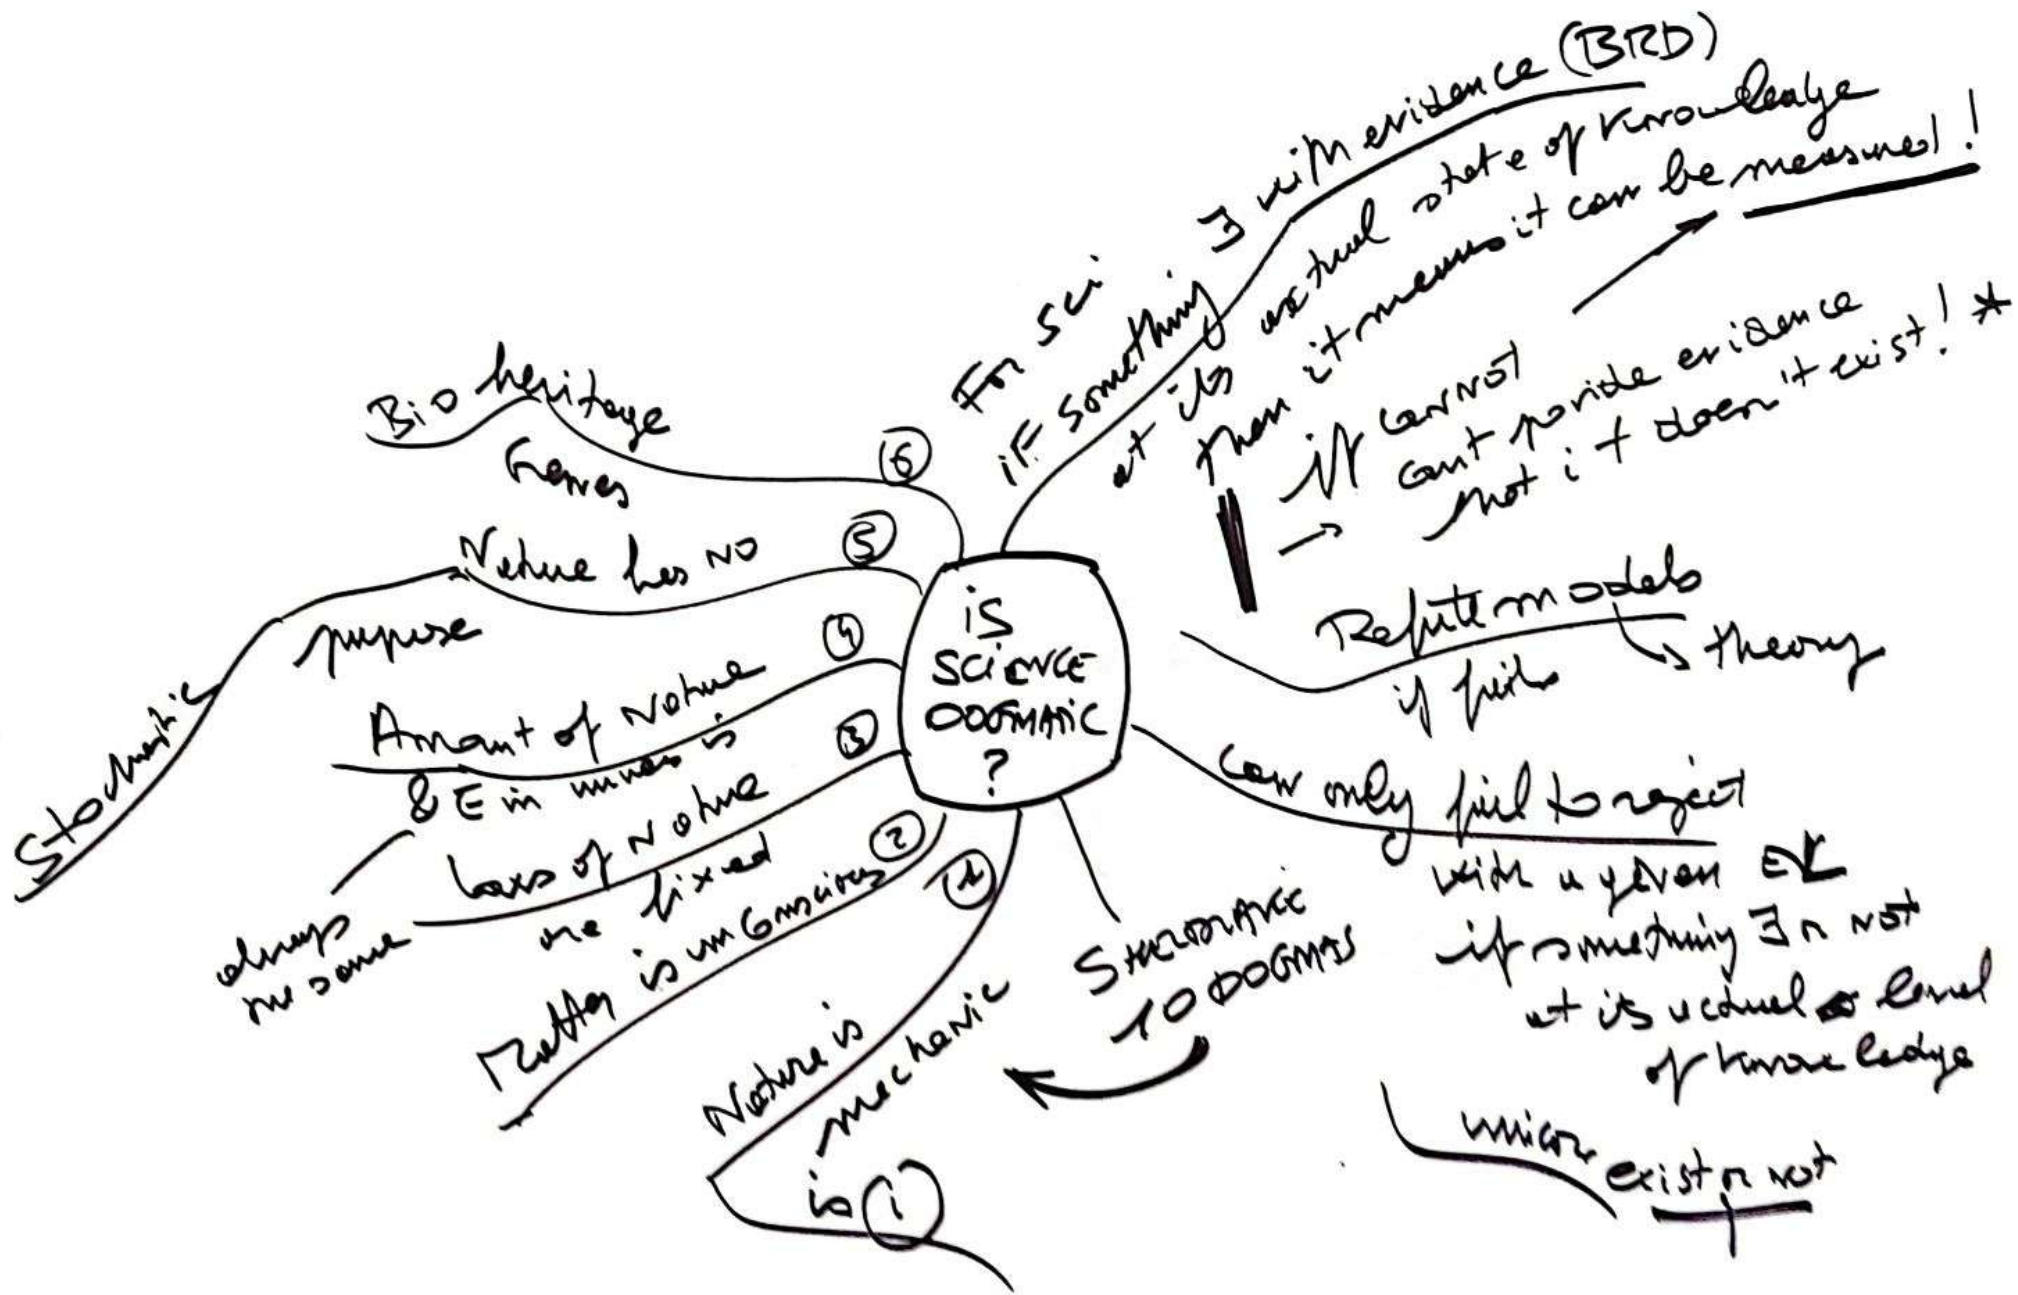 is
SCIENCE
DOGMATIC
?
For Sci
iF something ∃ with evidence (BRD)
at its actual state of knowledge
then it means it can be measured!
if cannot
→ can't provide evidence
that it doesn't exist! *
Refute models
if fails
↳ theory
can only fail to reject
with a given
if something ∃ or not
at its actual level
of knowledge
exist or not
SHELDRAKE
10 DOGMAS
1
Nature is
mechanic
is i
2
Matter is unconscious
3
Laws of Nature
are fixed
4
Amount of Nature
& E in is
always
the same
5
Nature has NO
purpose
Stochastic
6
Bio heritage
Genes